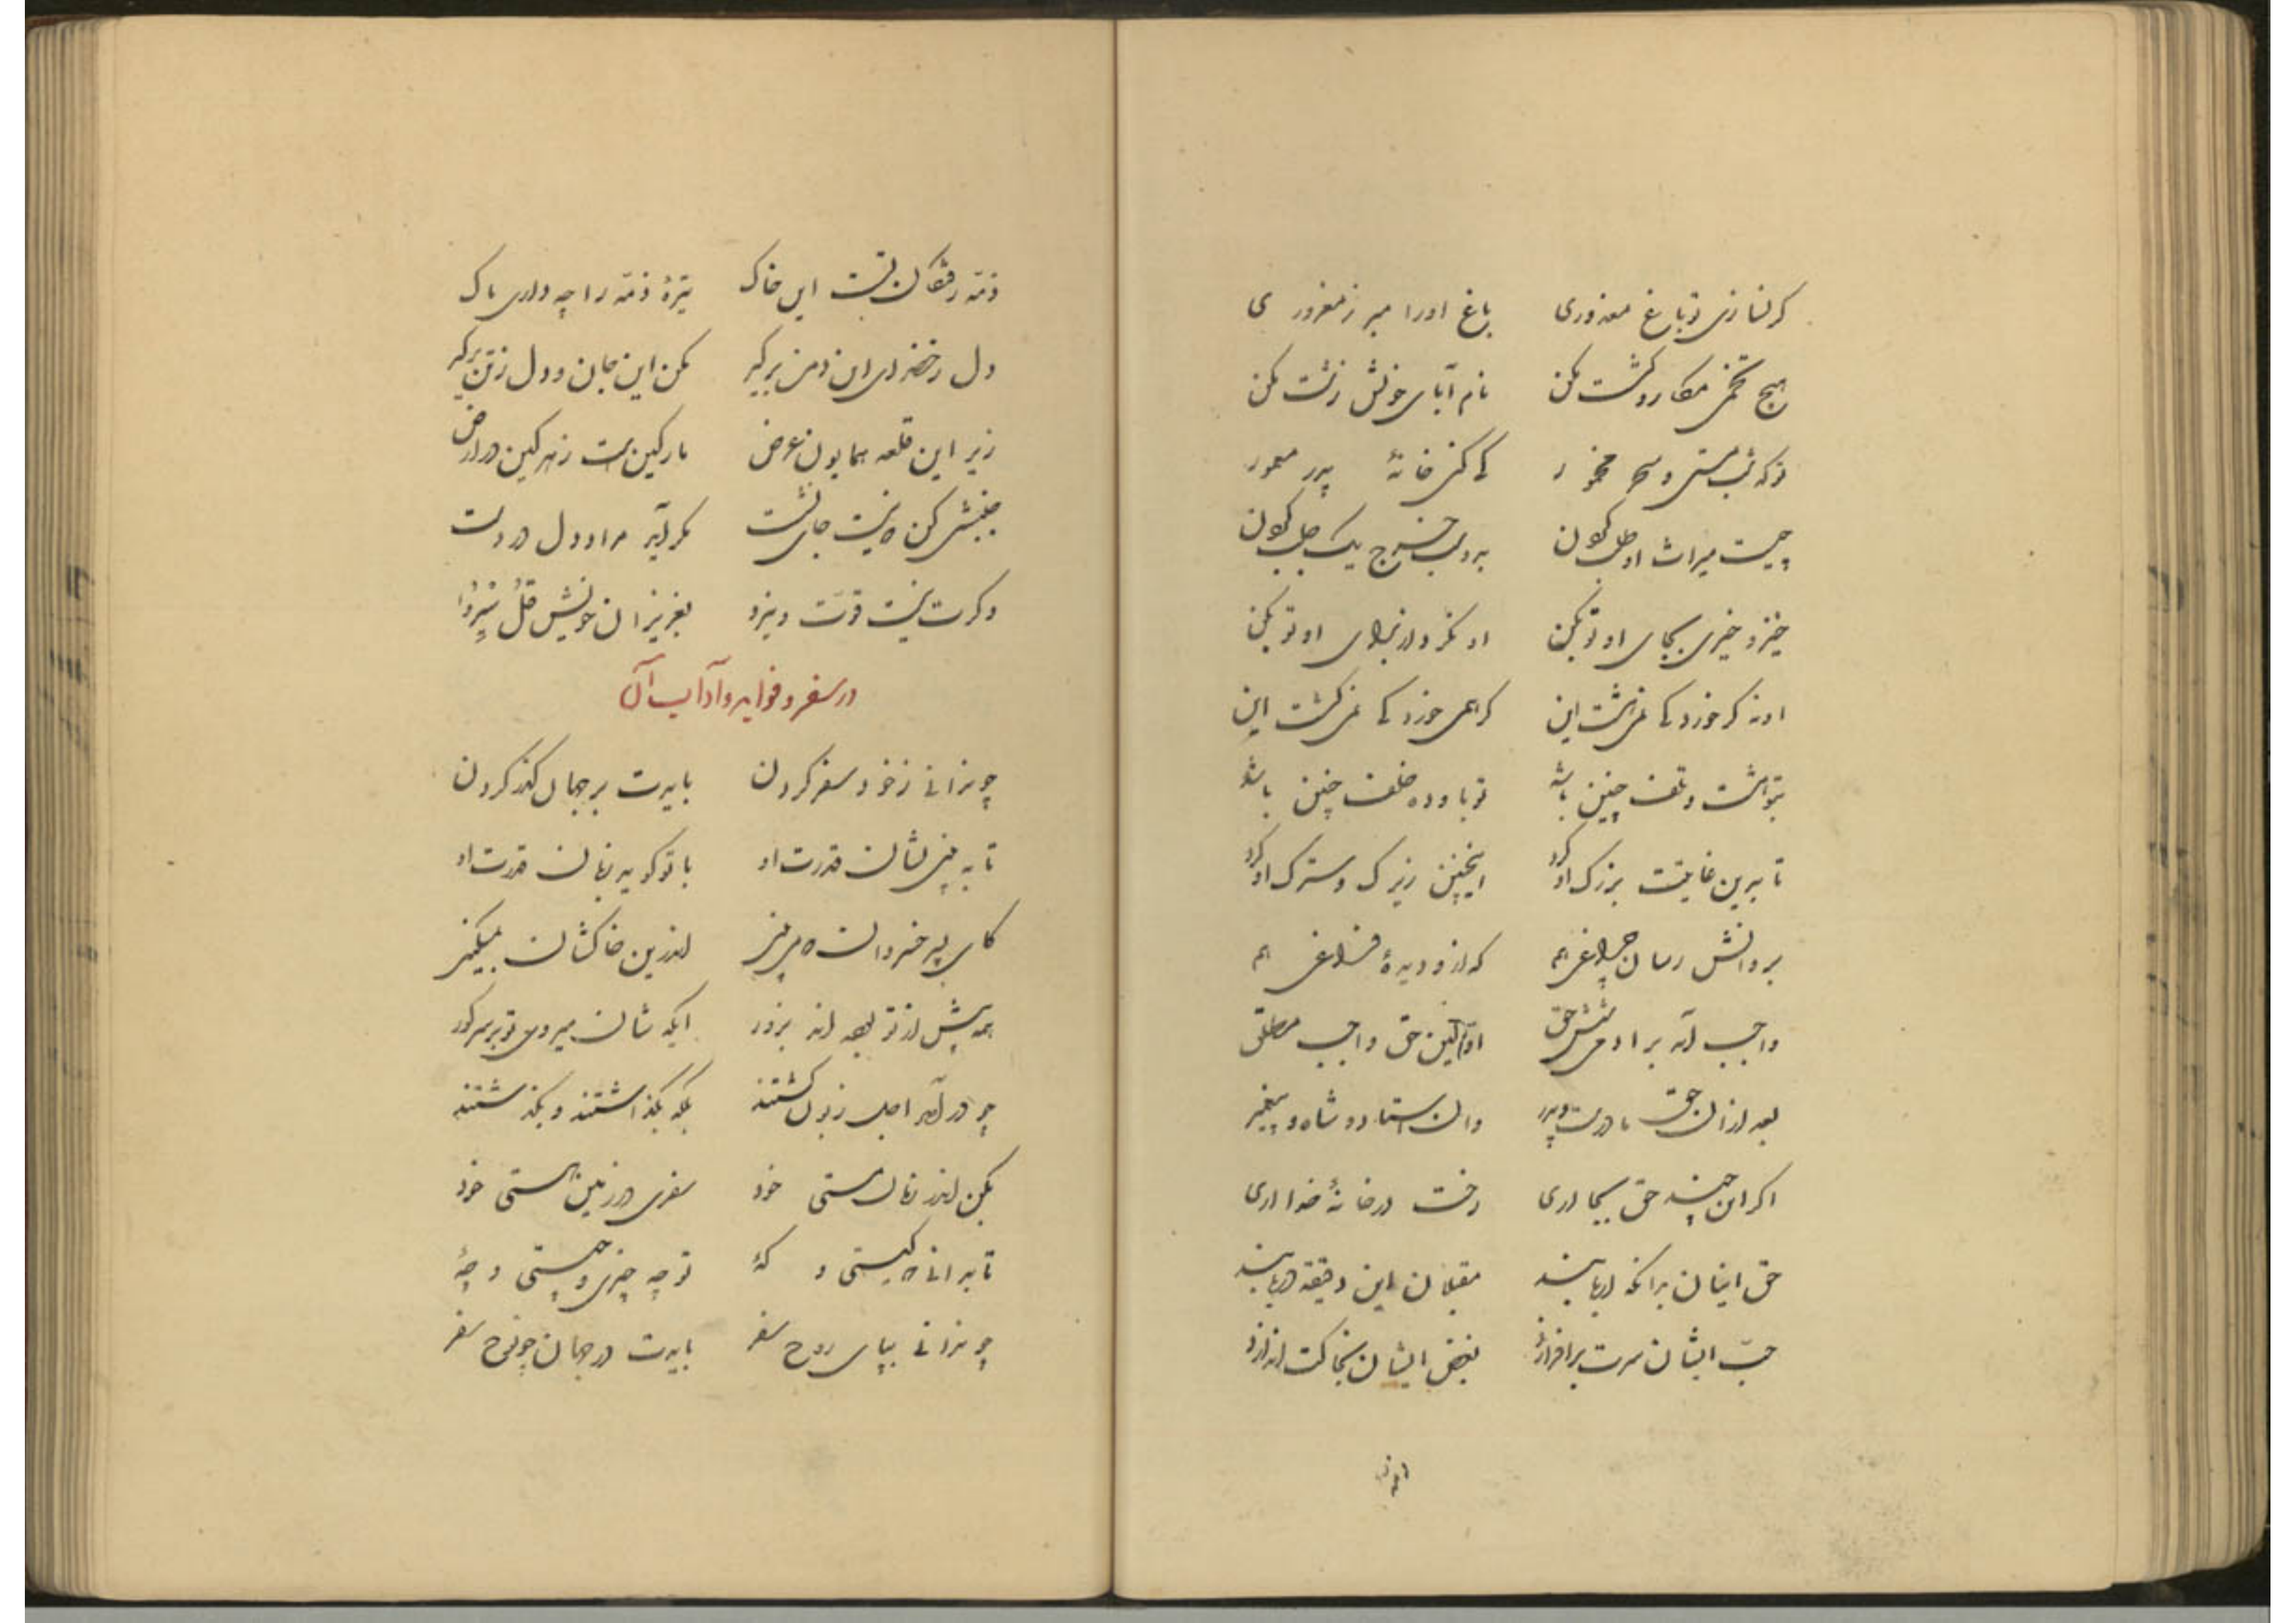 گر نسازی تو باغ معذوری باغ او را مبر ز مغروری
هیچ تخمی مکار و کشت مکن نام آبای خویش زشت مکن
تو که شب مستی و سحر مخمور کی کنی خانهٔ پدر معمور
چیست میراث خرج یک
خیز و خیری بجای او تو بکن او نکرد از برای او تو بکن
او نه گر خورد کی این گر همی خورد کی این
تلف چنین باشد خلف چنین باشد
تا بدین غایتت بزرگ او کرد اینچنین زیرک و سترگ او کرد
بر روانش رسان چراغی هم که ازو دیدهٔ فراغی هم
واجب آمد بر آدمی شش حق اولین حق واجب مطلق
بعد از ان حق مادرست و پدر وان استاد و شاه و پیغمبر
اگر این چند حق بجا اری رخت در خانهٔ خدا اری
حق اینان مقبلان این دقیقه دریابند
حب ایشان سرت برافرازد بغض ایشان بخاکت اندازد
ذمه رفتگان تست این خاک تیرهٔ ذمه را چه داری پاک
دل برگیر مکن این جان و دل ز تن برگیر
زیر این قلعه همایون عرض مارگین هست زهرگین در ارض
جنبشی کن که نیست جای نشست مگر آید مراد دل در دست
وگرت نیست قوت و نیرو بعزیزان خویش قل سیروا
در سفر و فواید و آداب آن
چو ندانی ز خود سفر کردن بایدت بر جهان گذر کردن
تا به بینی نشان قدرت او با تو گوید زبان قدرت او
کای پسر خیز و اندرین خاکشان
همه پیش از تو بوده اند بزور ایکه شان میروی تو بر سر گور
چو در آمد اجل زبون گشتند بگذاشتند و بگذشتند
بکن اندر زمان مستی خود سفری در زمین هستی خود
تا بدانی که کیستی و کهٔ تو چه چیزی و چیستی و چهٔ
چو ندانی بپای روح سفر بایدت در جهان چو نوح سفر